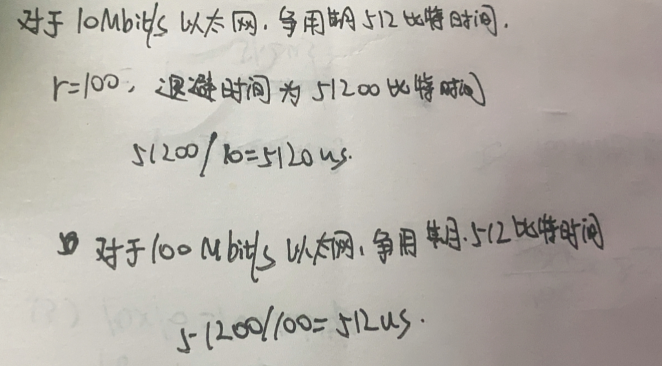 对于10Mbit/s以太网,争用期512比特时间.
r=100,退避时间为51200比特时间
51200/10=5120us.
对于100Mbit/s以太网,争用期.512比特时间
51200/100=512us.